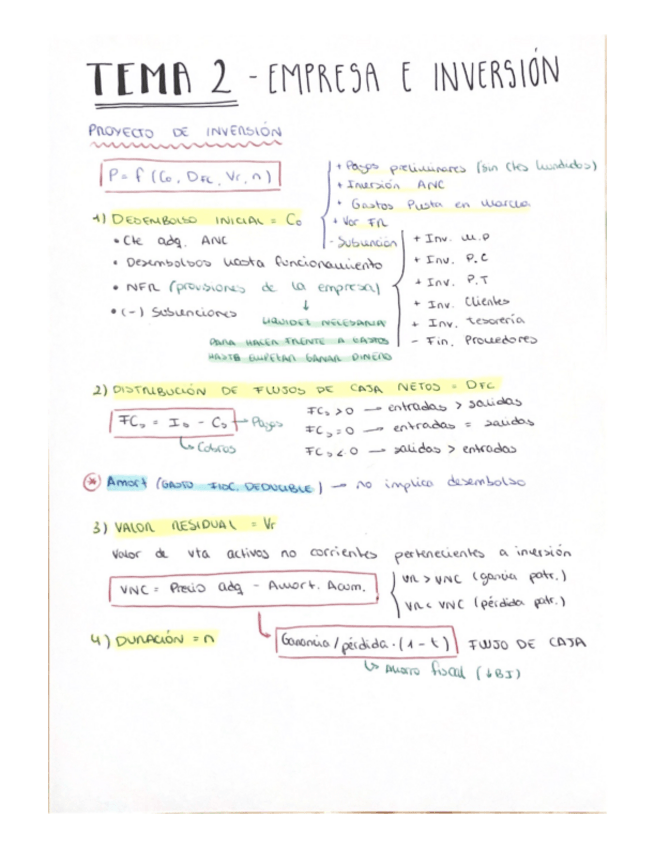 TEMA 2 - EMPRESA E INVERSIÓN
PROYECTO DE INVERSIÓN
P = f (Co, DFC, Vr, n)
+ Pagos preliminares (sin ctes hundidos)
+ Inversión ANC
+ Gastos Puesta en marcha
+ Var FR
- Subvención
1) DESEMBOLSO INICIAL = Co
• Cte adq. ANC
• Desembolsos hasta funcionamiento
• NFR (provisiones de la empresa)
• (-) Subvenciones
+ Inv. M.P
+ Inv. P.C
+ Inv. P.T
+ Inv. Clientes
+ Inv. tesorería
- Fin. Proveedores
↓
LIQUIDEZ NECESARIA
PARA HACER FRENTE A GASTOS
HASTA EMPEZAR GANAR DINERO
2) DISTRIBUCIÓN DE FLUJOS DE CAJA NETOS = DFC
FCs = Is - Cs → Pagos
↳ Cobros
FCs > 0 → entradas > salidas
FCs = 0 → entradas = salidas
FCs < 0 → salidas > entradas
* Amort (GASTO FISC. DEDUCIBLE) → no implica desembolso
3) VALOR RESIDUAL = Vr
Valor de vta activos no corrientes pertenecientes a inversión
VNC = Precio adq - Amort. Acum.
VR > VNC (gancia patr.)
VR < VNC (pérdida patr.)
4) DURACIÓN = n
Ganancia/pérdida · (1 - t) FLUJO DE CAJA
↳ Ahorro fiscal (↓BI)